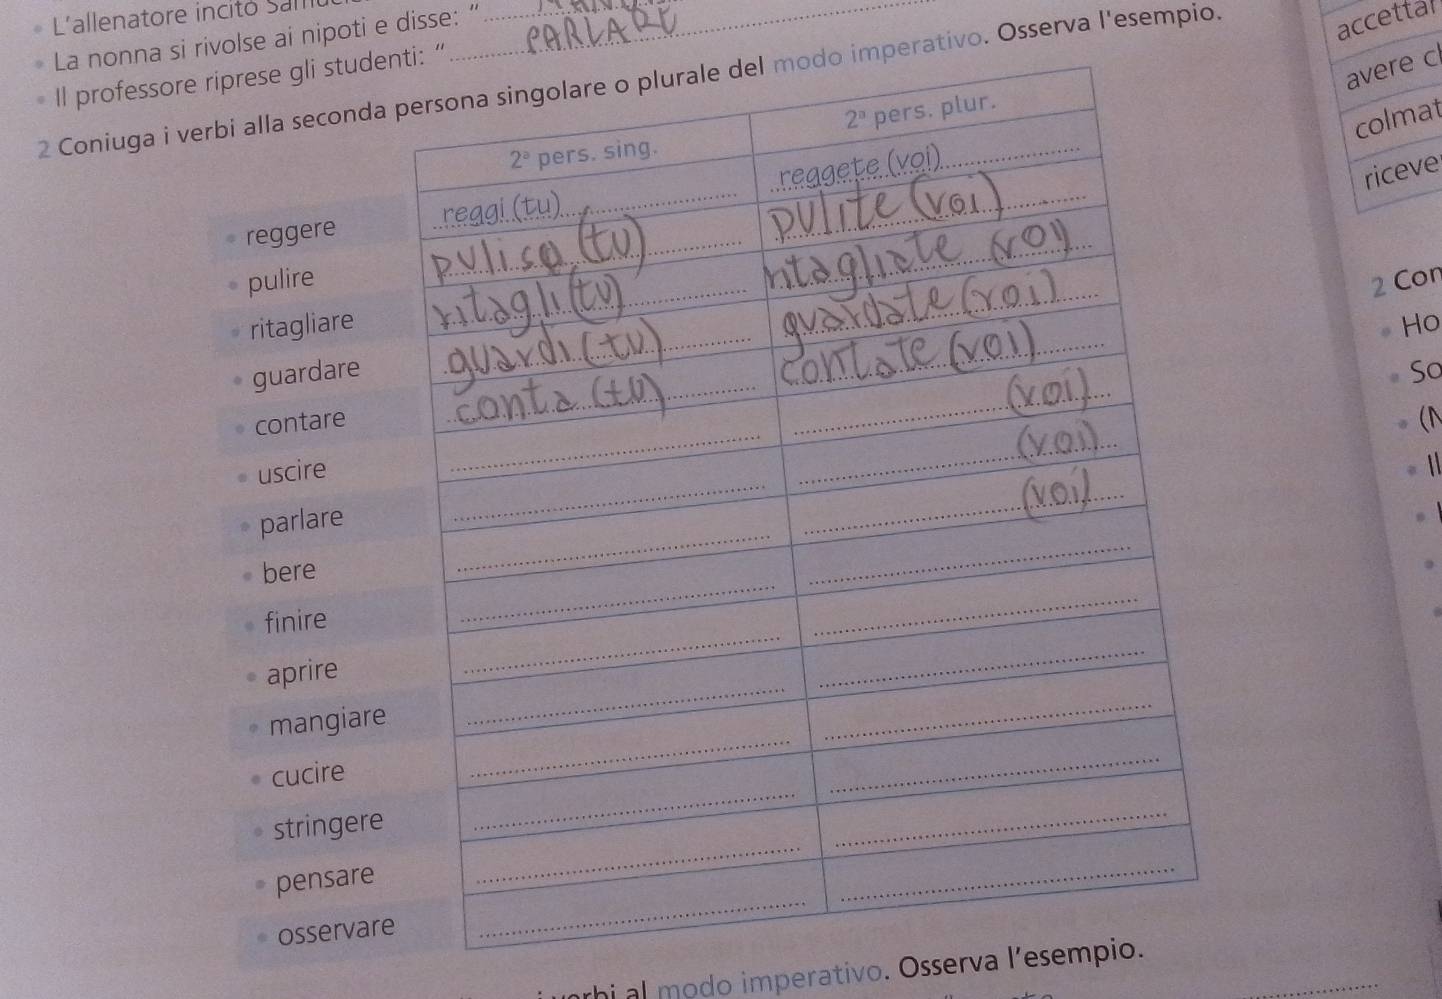 L'allenatore incitò
La nonna si rivolse ai nipoti e disse: "
Il professore riprese gli studenti: " PARLARE
2 Coniuga i verbi alla seconda persona singolare o plurale del modo imperativo. Osserva l'esempio.
2ª pers. sing. 2ª pers. plur.
reggere reggi (tu) reggete (voi)
pulire pulisa (tu) pulite (voi)
ritagliare ritagli (tu) ritagliate (voi)
guardare guardi (tu) guardate (voi)
contare conta (tu) contate (voi)
uscire (voi)
parlare (voi)
bere (voi)
finire
aprire
mangiare
cucire
stringere
pensare
osservare
al modo imperativo. Osserva l'esempio.
accettar
avere c
colmat
riceve
2 Con
Ho
So
(N
Il